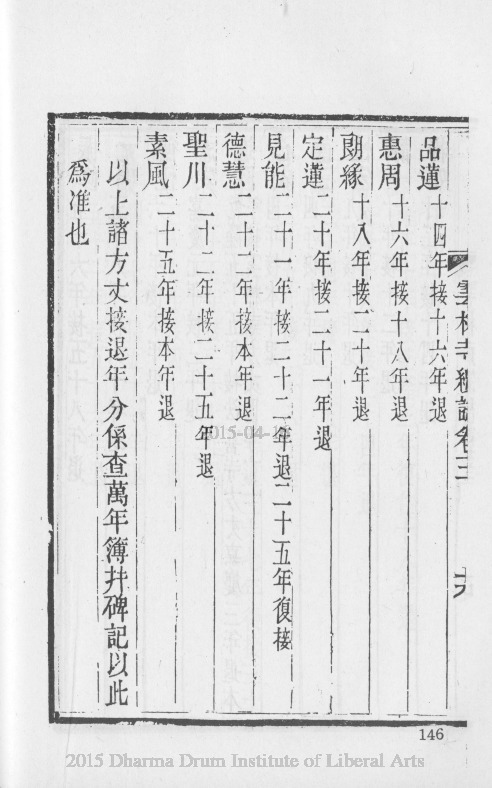 雲林寺續誌卷三 十六
品蓮 十四年接十六年退
惠周 十六年接十八年退
朗緣 十八年接二十年退
定蓮 二十年接二十一年退
見能 二十一年接二十二年退二十五年復接
德慧 二十二年接本年退
聖川 二十二年接二十五年退
素風 二十五年接本年退
以上諸方丈接退年分係查萬年簿幷碑記以此
爲准也
2015-04-1
146
2015 Dharma Drum Institute of Liberal Arts